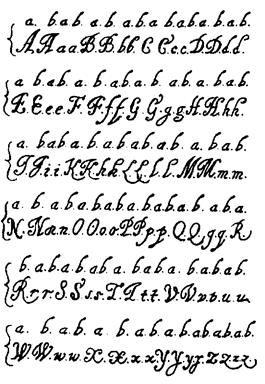 a. b.a b. a. b. a b. a b.a.b.a.b.a.b.
A.A.a.a.B.B.b.b.C.C.c.c.D.D.d.d.
a. b.a.b. a. b. a.b.a. b. a.b.a. b. a.b.
E.E.e.e.F.F.f.f.G.G.g.g.H.H.h.h.
a. b.a b.a. b. a.b.a.b.a b. a. b.a.b.
I.I.i.i.K.K.k.k.L.L.l.l.M.M.m.m.
a. b. a. b.a.b.a.b.a.b.a.b.a.b. a.b. a.
N.N.n.n.O.O.o.o.P.P.p.p.Q.Q.q.q.R.
b. a.b.a.b.a.b. a.b.a.b. a. b.a.b.a.b.
R.r.r.S.S.s.s.T.T.t.t.V.V.v.v.u.u.
a. b. a.b. a. b. a.b. a.b.a.b.a.b.a.b.
W.W.w.w.X.X.x.x.Y.Y.y.y.Z.Z.z.z.